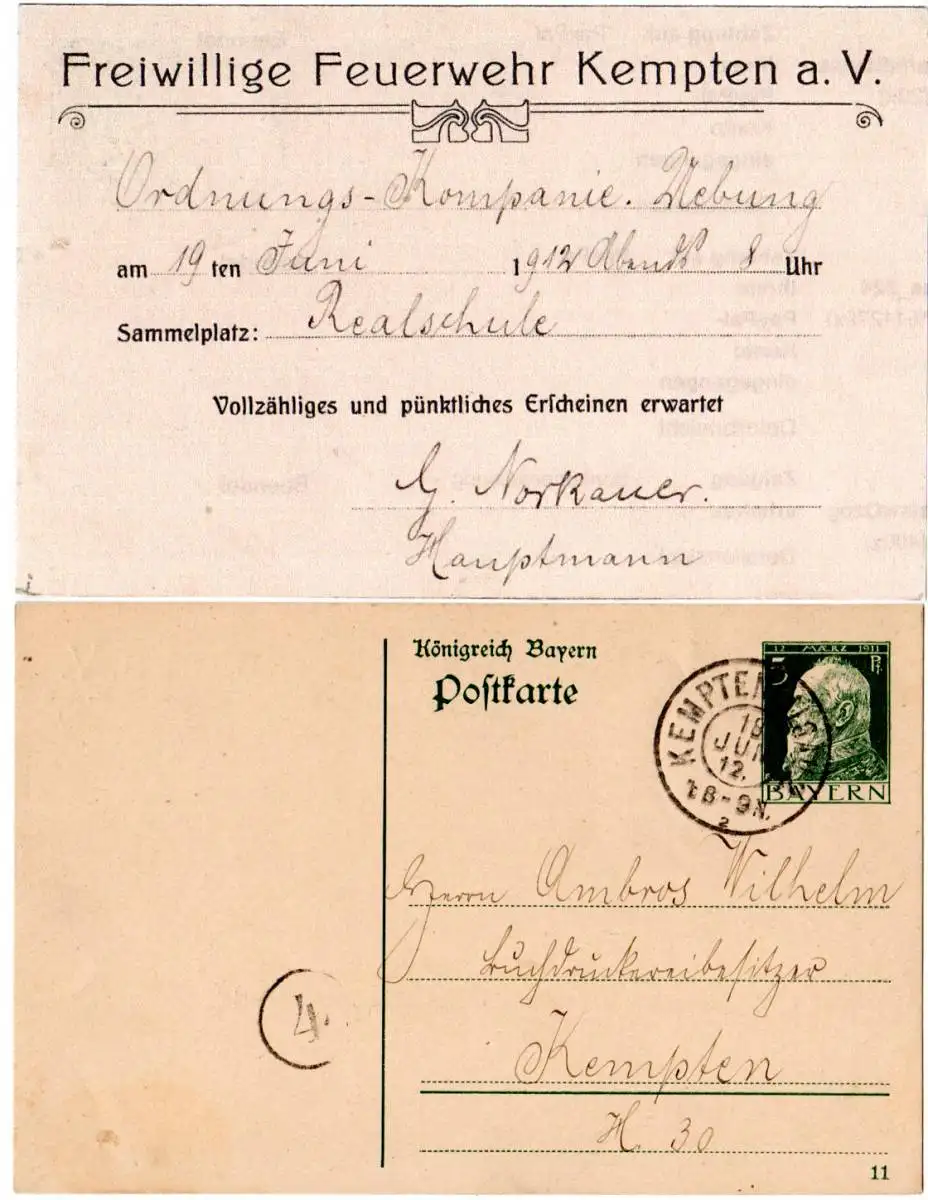 Freiwillige Feuerwehr Kempten a. V.
Ordnungs-Kompanie. Uebung
am 19 ten Juni 1912 Abends 8 Uhr
Sammelplatz: Realschule
Vollzähliges und pünktliches Erscheinen erwartet
G. Norkauer.
Hauptmann
Königreich Bayern
Postkarte
12 MÆRZ 1911
5 Pf.
BAYERN
KEMPTEN
18
JUN
12.
8-9N.
2
Herrn Ambros Wilhelm
Buchdruckereibesitzer
Kempten
H. 30
4.
11